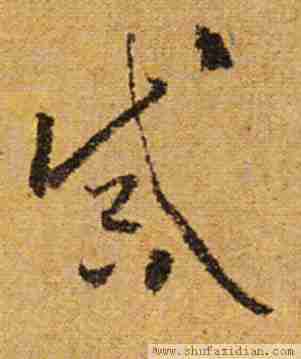 戚
www.shufazidian.com